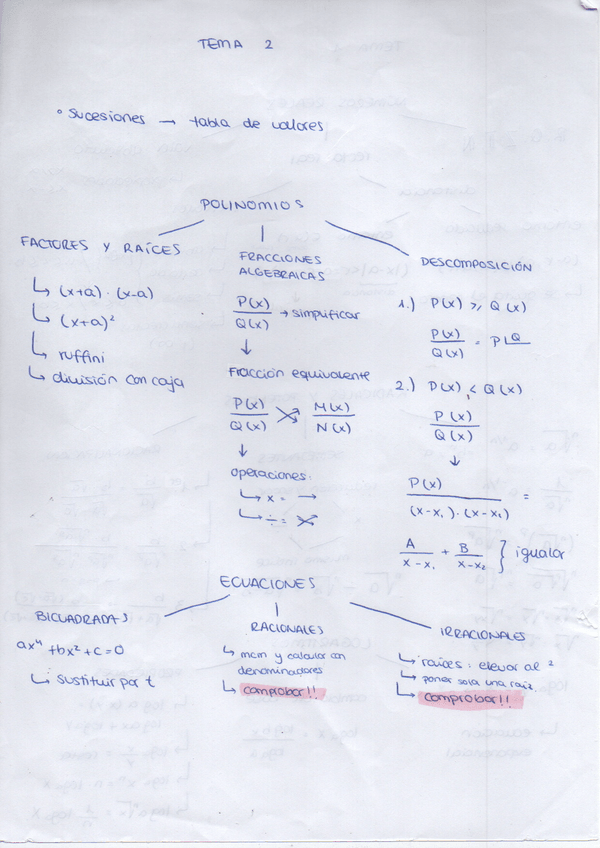 TEMA 2
° Sucesiones → tabla de valores
POLINOMIOS
FACTORES Y RAÍCES
↳ (x+a) · (x-a)
↳ (x+a)²
↳ ruffini
↳ división con caja
FRACCIONES
ALGEBRAICAS
P(x)/Q(x) → simplificar
↓
Fracción equivalente
P(x)/Q(x) M(x)/N(x)
↓
operaciones:
↳ x = →
↳ ÷ =
DESCOMPOSICIÓN
1.) P(x) ≥ Q(x)
P(x)/Q(x) = P∟Q
2.) P(x) < Q(x)
P(x)/Q(x)
↓
P(x)/(x-x₁)·(x-x₂) =
A/x-x₁ + B/x-x₂ } igualar
ECUACIONES
BICUADRADAS
ax⁴ + bx² + c = 0
↳ sustituir por t
RACIONALES
↳ mcm y calcular con
denominadores
↳ comprobar!!
IRRACIONALES
↳ raíces: elevar al ²
↳ poner sola una raíz
↳ comprobar!!